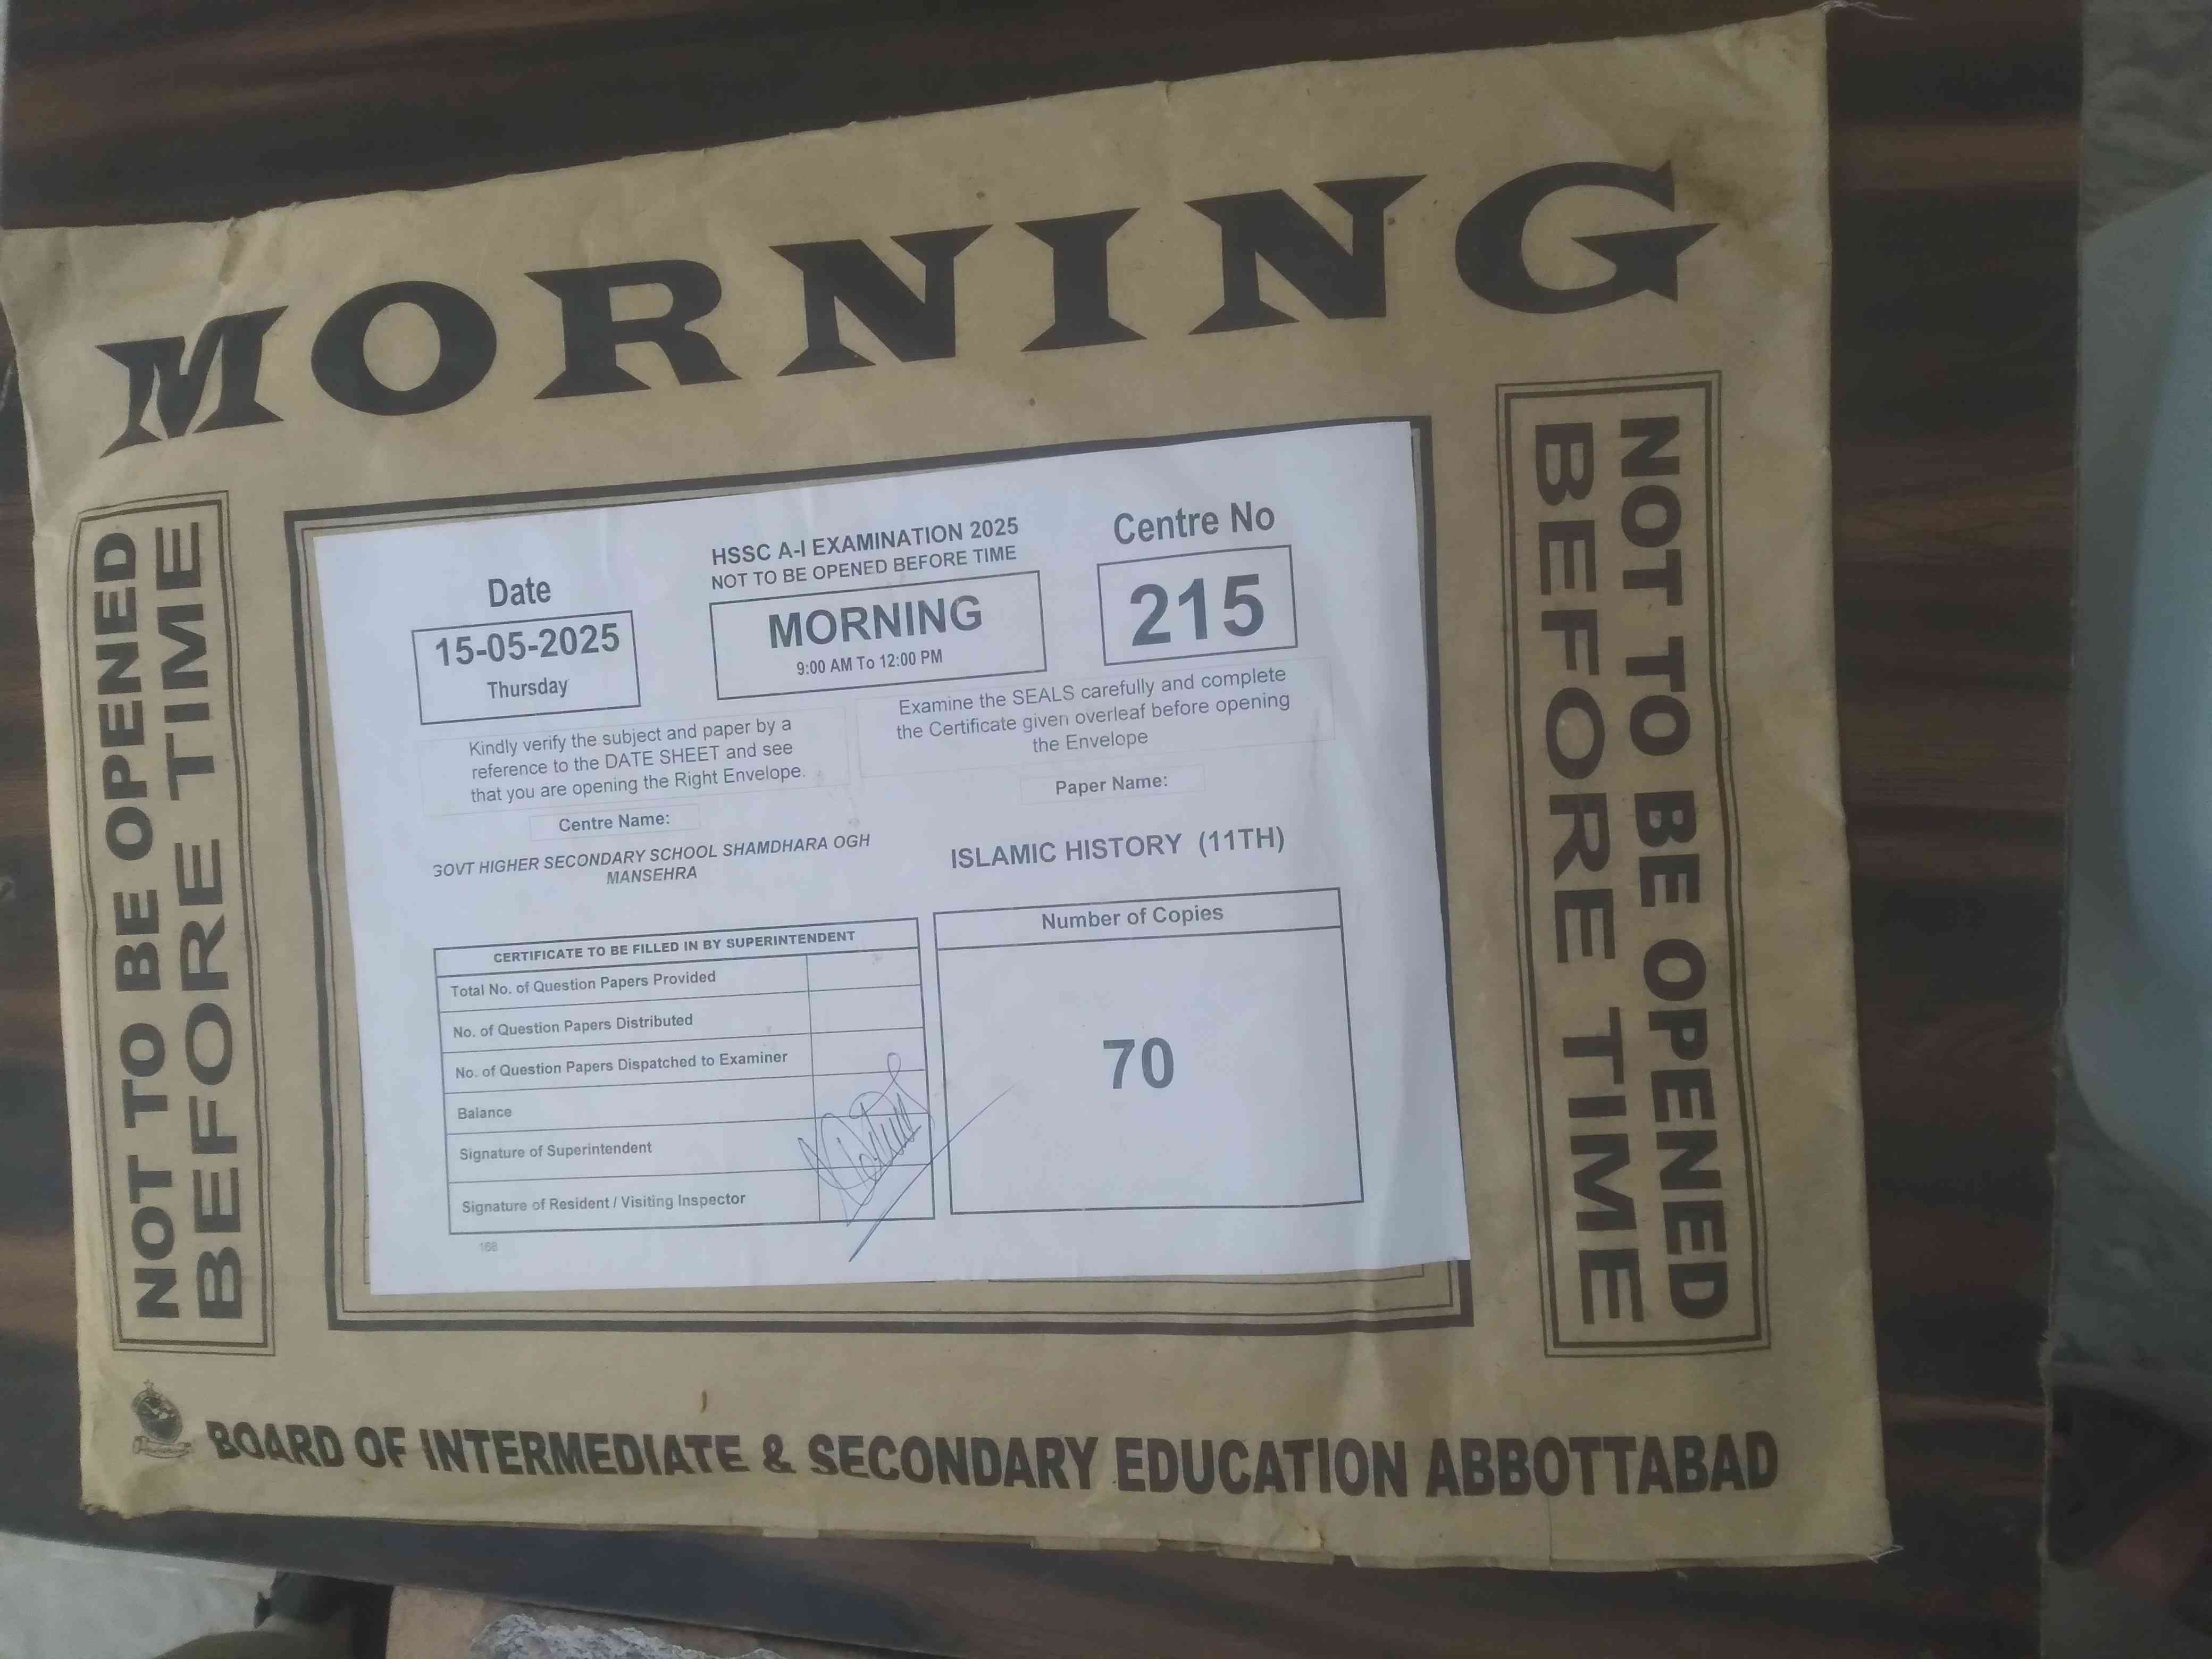 MORNING
NOT TO BE OPENED
BEFORE TIME
Date
15-05-2025
Thursday
HSSC A-I EXAMINATION 2025
NOT TO BE OPENED BEFORE TIME
MORNING
9:00 AM To 12:00 PM
Centre No
215
Kindly verify the subject and paper by a
reference to the DATE SHEET and see
that you are opening the Right Envelope.
Examine the SEALS carefully and complete
the Certificate given overleaf before opening
the Envelope
Centre Name:
GOVT HIGHER SECONDARY SCHOOL SHAMDHARA OGH
MANSEHRA
Paper Name:
ISLAMIC HISTORY (11TH)
CERTIFICATE TO BE FILLED IN BY SUPERINTENDENT
Total No. of Question Papers Provided
No. of Question Papers Distributed
No. of Question Papers Dispatched to Examiner
Balance
Signature of Superintendent
Signature of Resident / Visiting Inspector
Number of Copies
70
168
NOT TO BE OPENED
BEFORE TIME
BOARD OF INTERMEDIATE & SECONDARY EDUCATION ABBOTTABAD